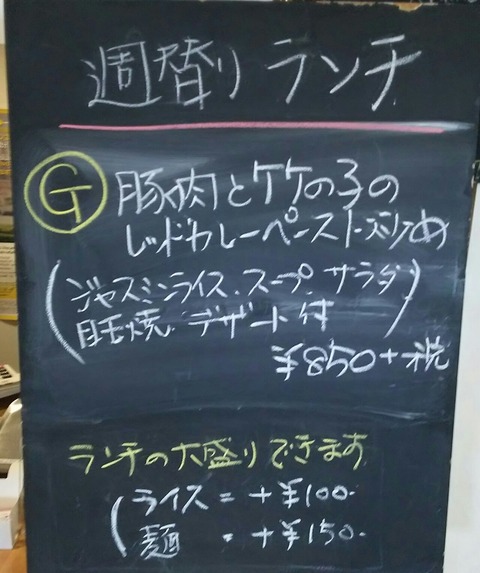 週替りランチ
G 豚肉と竹の子の
レッドカレーペースト炒め
(ジャスミンライス.スープ.サラダ
目玉焼.デザート付)
¥850+税
ランチの大盛りできます
(ライス=+¥100.
麺 =+¥150.